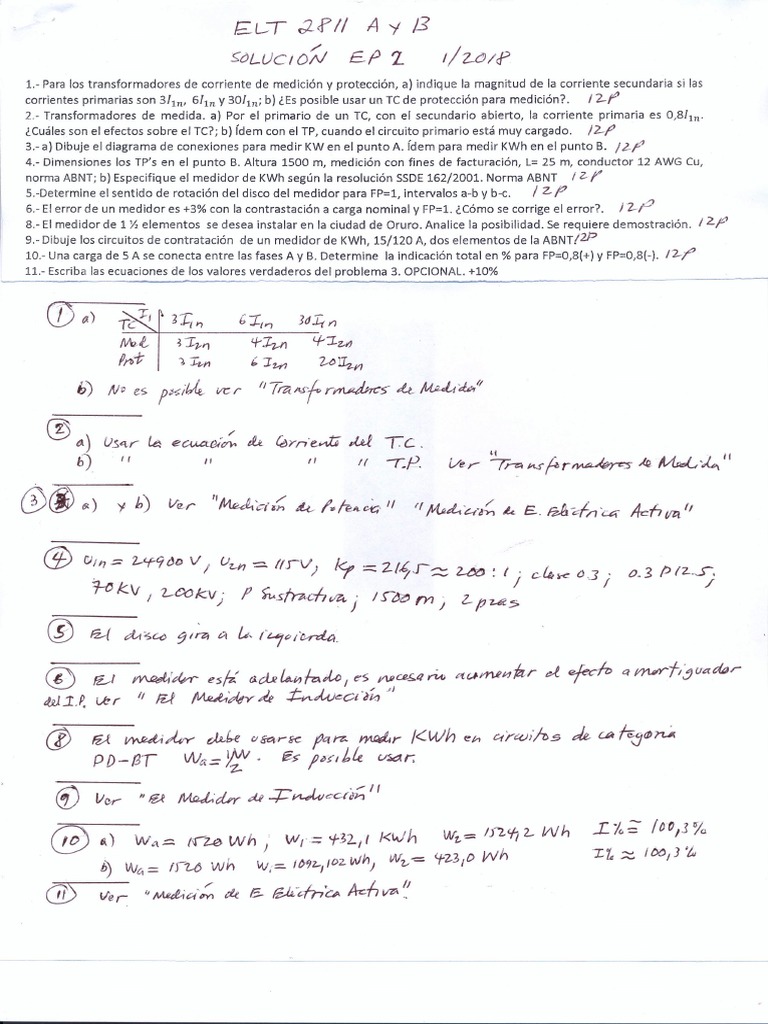 ELT 2811 A y B
SOLUCIÓN EP 2 1/2018
1.- Para los transformadores de corriente de medición y protección, a) indique la magnitud de la corriente secundaria si las
corrientes primarias son 3I1n, 6I1n y 30I1n; b) ¿Es posible usar un TC de protección para medición?. 12P
2.- Transformadores de medida. a) Por el primario de un TC, con el secundario abierto, la corriente primaria es 0,8I1n.
¿Cuáles son el efectos sobre el TC?; b) Ídem con el TP, cuando el circuito primario está muy cargado. 12P
3.- a) Dibuje el diagrama de conexiones para medir KW en el punto A. Ídem para medir KWh en el punto B. 12P
4.- Dimensiones los TP's en el punto B. Altura 1500 m, medición con fines de facturación, L= 25 m, conductor 12 AWG Cu,
norma ABNT; b) Especifique el medidor de KWh según la resolución SSDE 162/2001. Norma ABNT 12P
5.-Determine el sentido de rotación del disco del medidor para FP=1, intervalos a-b y b-c. 12P
6.- El error de un medidor es +3% con la contrastación a carga nominal y FP=1. ¿Cómo se corrige el error?. 12P
8.- El medidor de 1 ½ elementos se desea instalar en la ciudad de Oruro. Analice la posibilidad. Se requiere demostración. 12P
9.- Dibuje los circuitos de contratación de un medidor de KWh, 15/120 A, dos elementos de la ABNT 12P
10.- Una carga de 5 A se conecta entre las fases A y B. Determine la indicación total en % para FP=0,8(+) y FP=0,8(-). 12P
11.- Escriba las ecuaciones de los valores verdaderos del problema 3. OPCIONAL. +10%
1 a) TC I1 3I1n 6I1n 30I1n
Med 3I2n 4I2n 4I2n
Prot 3I2n 6I2n 20I2n
b) No es posible ver "Transformadores de Medida"
2
a) Usar la ecuación de Corriente del T.C.
b) " " " " T.P. Ver "Transformadores de Medida"
3 a) y b) Ver "Medición de Potencia" "Medición de E. Eléctrica Activa"
4 U1n = 24900 V, U2n = 115 V; Kp = 216,5 ≈ 200:1; clase 0.3; 0.3 P12.5;
70KV, 200KV; P Sustractiva; 1500 m; 2 pzas
5 El disco gira a la izquierda.
6 El medidor está adelantado, es necesario aumentar el efecto amortiguador
del I.P. ver "El Medidor de Inducción"
8 El medidor debe usarse para medir KWh en circuitos de categoria
PD-BT Wa = W/2. Es posible usar.
9 Ver "El Medidor de Inducción"
10 a) Wa = 1520 Wh; W1 = 432,1 KWh W2 = 1524,2 Wh I% ≅ 100,3%
b) Wa = 1520 Wh W1 = 1092,102 Wh, W2 = 423,0 Wh I% ≈ 100,3%
11 Ver "Medición de E Eléctrica Activa".